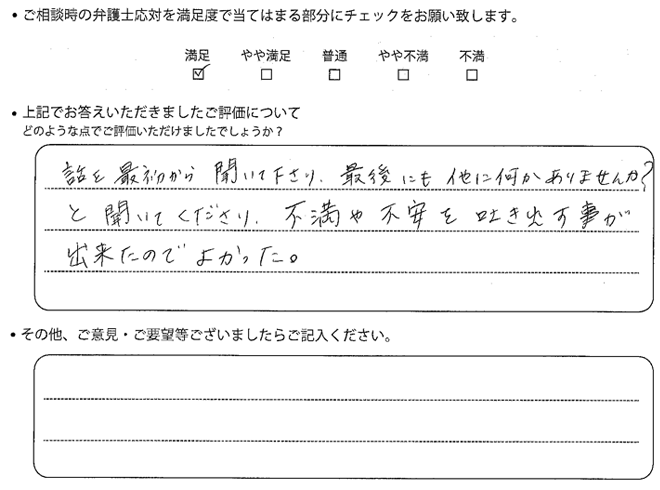 • ご相談時の弁護士応対を満足度で当てはまる部分にチェックをお願い致します。
満足 やや満足 普通 やや不満 不満
☑ □ □ □ □
• 上記でお答えいただきましたご評価について
どのような点でご評価いただけましたでしょうか？
話を最初から聞いて下さり、最後にも他に何かありませんか？
と聞いてくださり、不満や不安を吐き出す事が
出来たのでよかった。
• その他、ご意見・ご要望等ございましたらご記入ください。